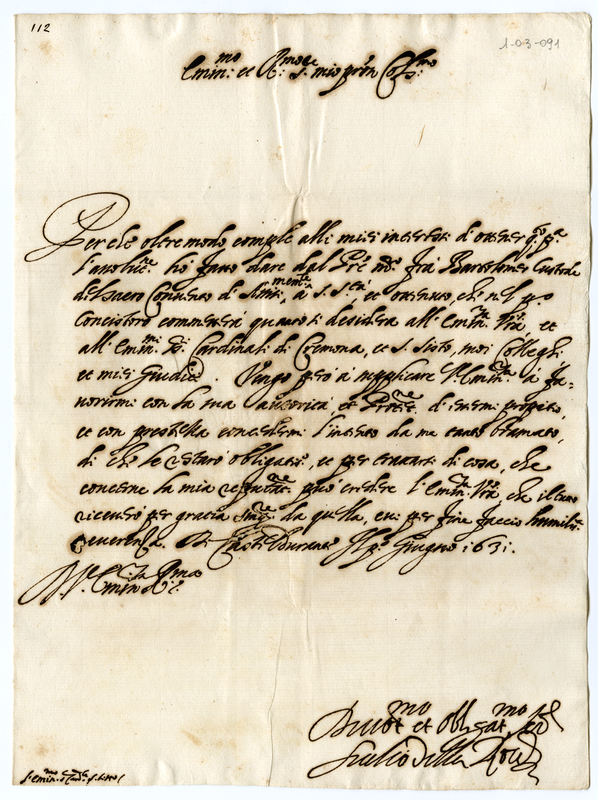 112
1-03-091
Emin.mo et R.mo S. mio pron Col.mo
Per che oltremodo comple alli miei interessi di ottener q.to p.a
l'assolut.ne hò fatto dare dal P.re Frà Bartolomeo Custode
del sacro Convento di à S. S.tà, et ottenuto, che nel p.o
Concistoro commetterà quanto si desidera all'Emin.za V.ra, et
all'Emin.mi SS. Cardinali di Cremona, et S. Sisto, suoi Colleghi
et miei Giudici. Vengo però à supplicare l'Emin.za à fa=
vorirmi con la sua autorità, et di essermi propitio,
et con prestezza concedermi l'intento da me tanto bramato,
di che le restarò obligatis.o, et per trattarsi di cosa, che
concerne la mia reputat.ne può credere l'Emin.za V.ra, che il tutto
riceverò per gratia da quella, et per fine faccio humilis.a
reverenza. Di Casteldurante Giugno 1631.
Di V. Emin.za R.ma
Devot.mo et obligat.mo ser
Giulio della Rovere